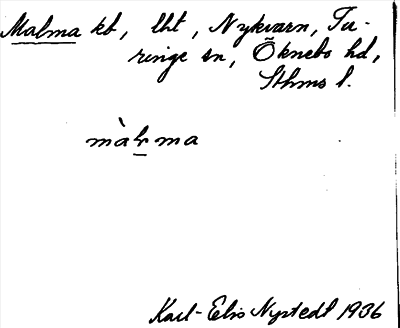 Malma kb, lht, Nykvarn, Tu-
ringe sn, Öknebo hd,
Sthms l.
màḻma
Karl-Elis Nystedt 1936